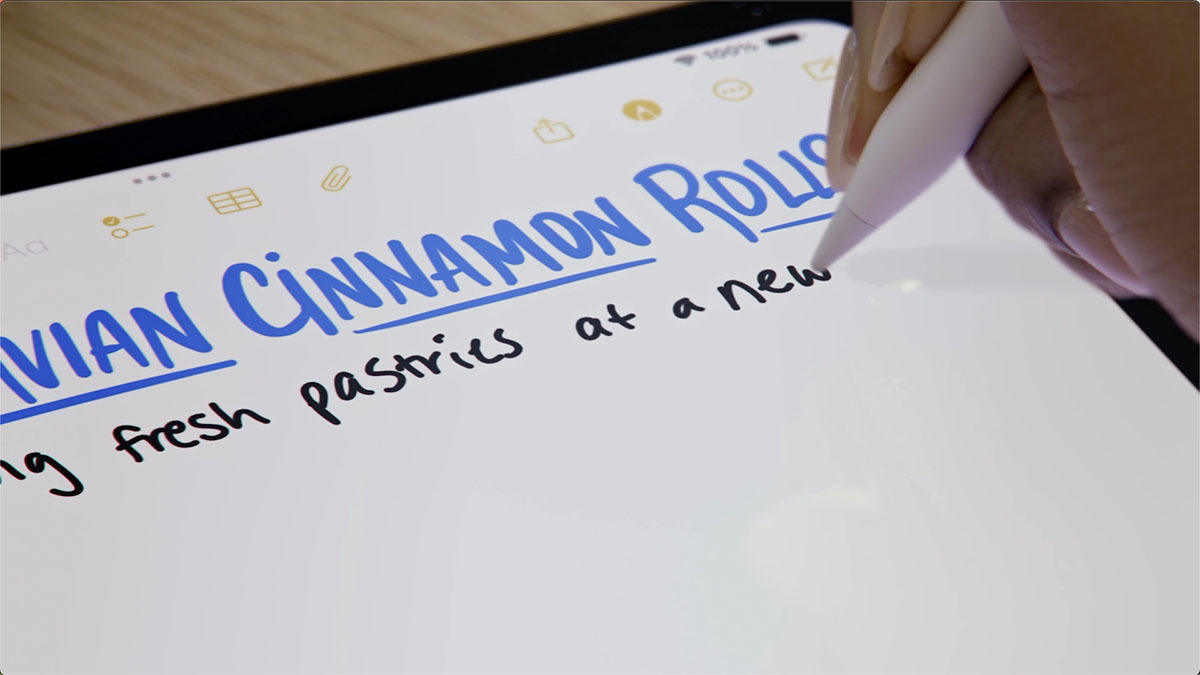 100%
Aa
VIAN CINNAMON ROLLS
ng fresh pastries at a new